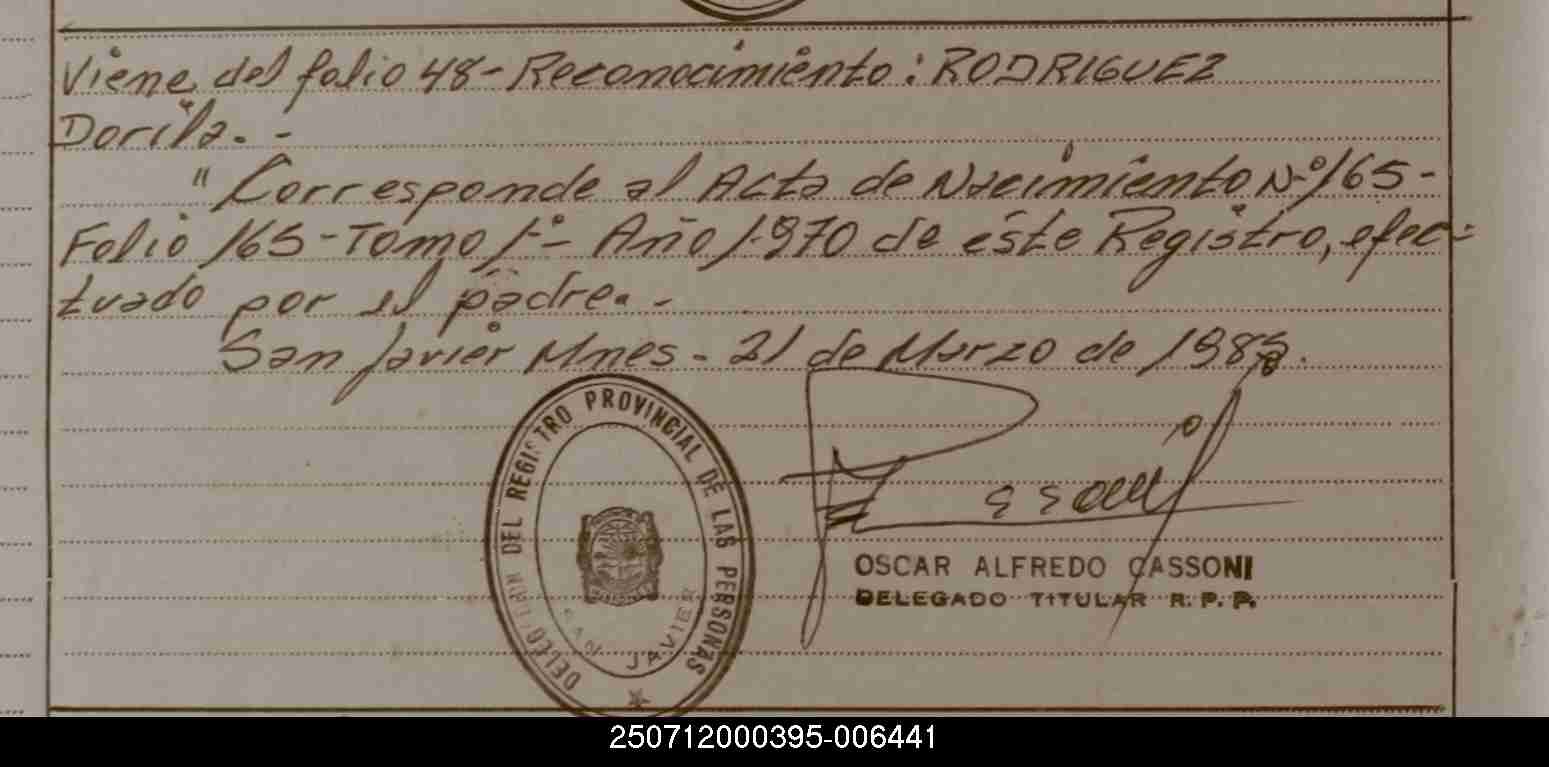 Viene del folio 48 - Reconocimiento: RODRIGUEZ
Dorila. -
" Corresponde al Acta de Nacimiento Nº 165 -
Folio 165 - Tomo 1º - Año 1.970 de éste Registro, efec-
tuado por el padre. -
San Javier Mnes - 21 de Marzo de 1985.
DELEGACION DEL REGISTRO PROVINCIAL DE LAS PERSONAS
SAN JAVIER
OSCAR ALFREDO CASSONI
DELEGADO TITULAR R. P. P.
250712000395-006441